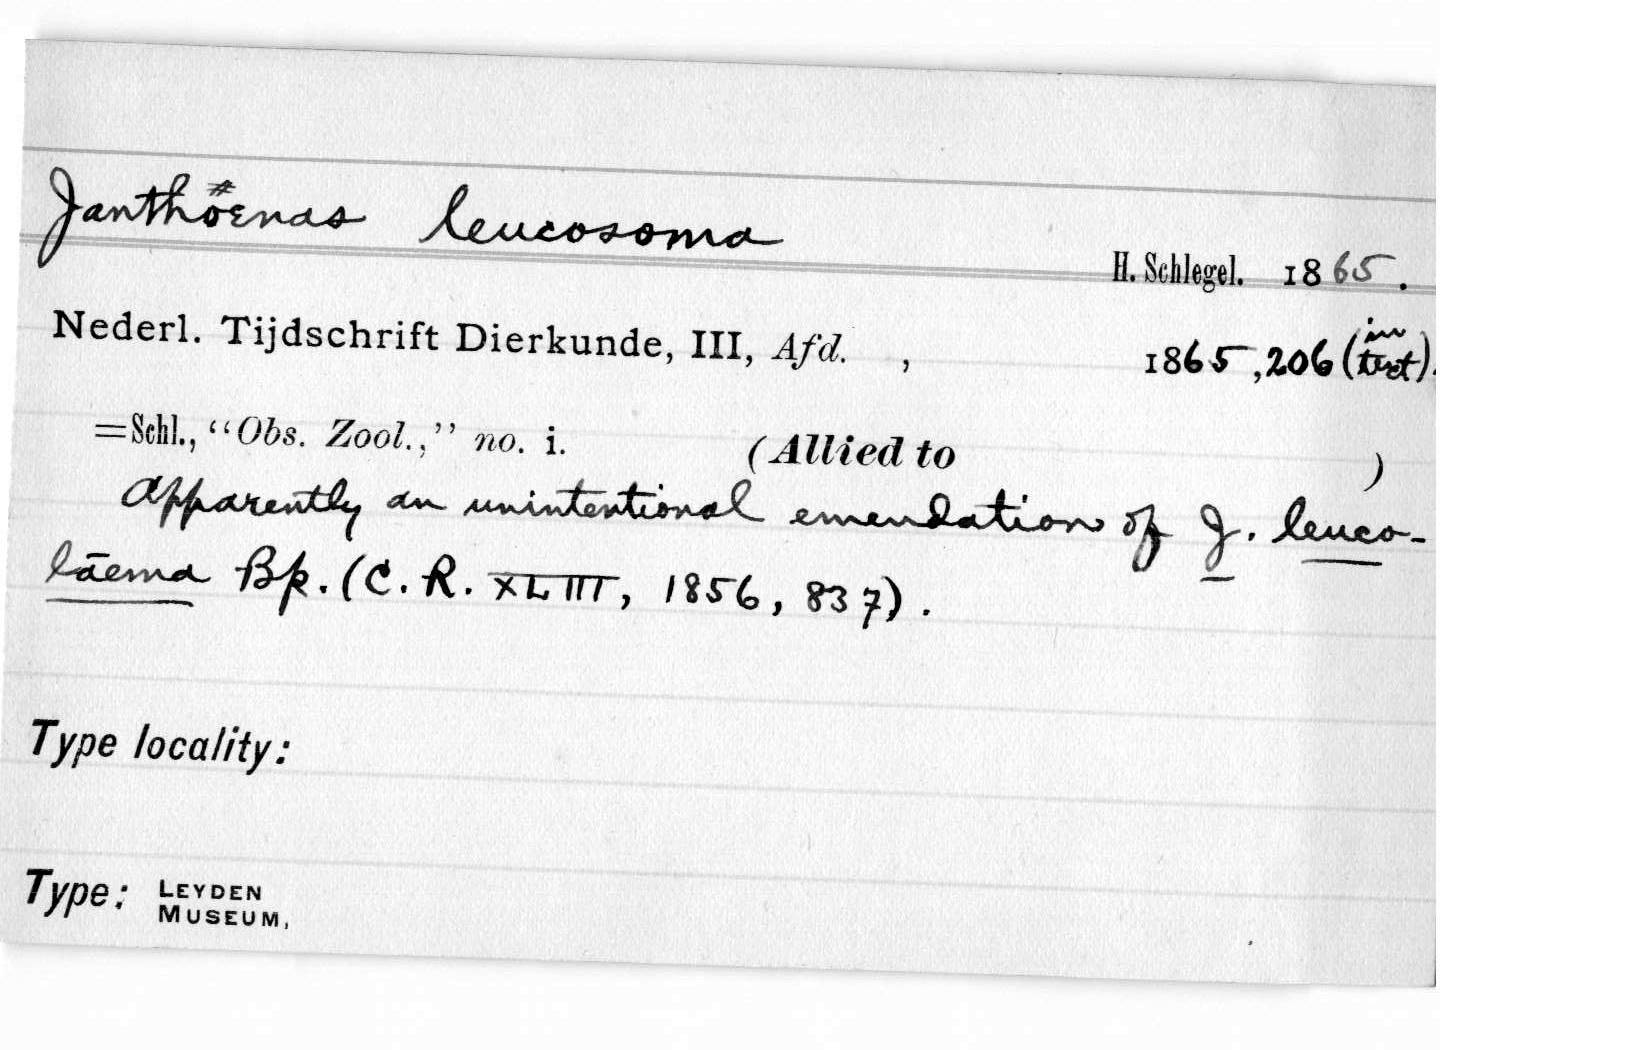 Janthöenas leucosoma
H. Schlegel. 1865.
Nederl. Tijdschrift Dierkunde, III, Afd. , 1865, 206 (in text).
=Schl., “Obs. Zool.,” no. i. (Allied to )
Apparently an unintentional emendation of J. leuco-
läema Bp. (C. R. XLIII, 1856, 837).
Type locality:
Type: LEYDEN
MUSEUM,